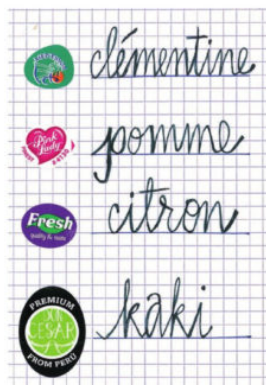 clémentine
Pink Lady
#4130
pomme
Fresh
quality & taste
citron
PREMIUM
DON
CESAR
FROM PERU
kaki